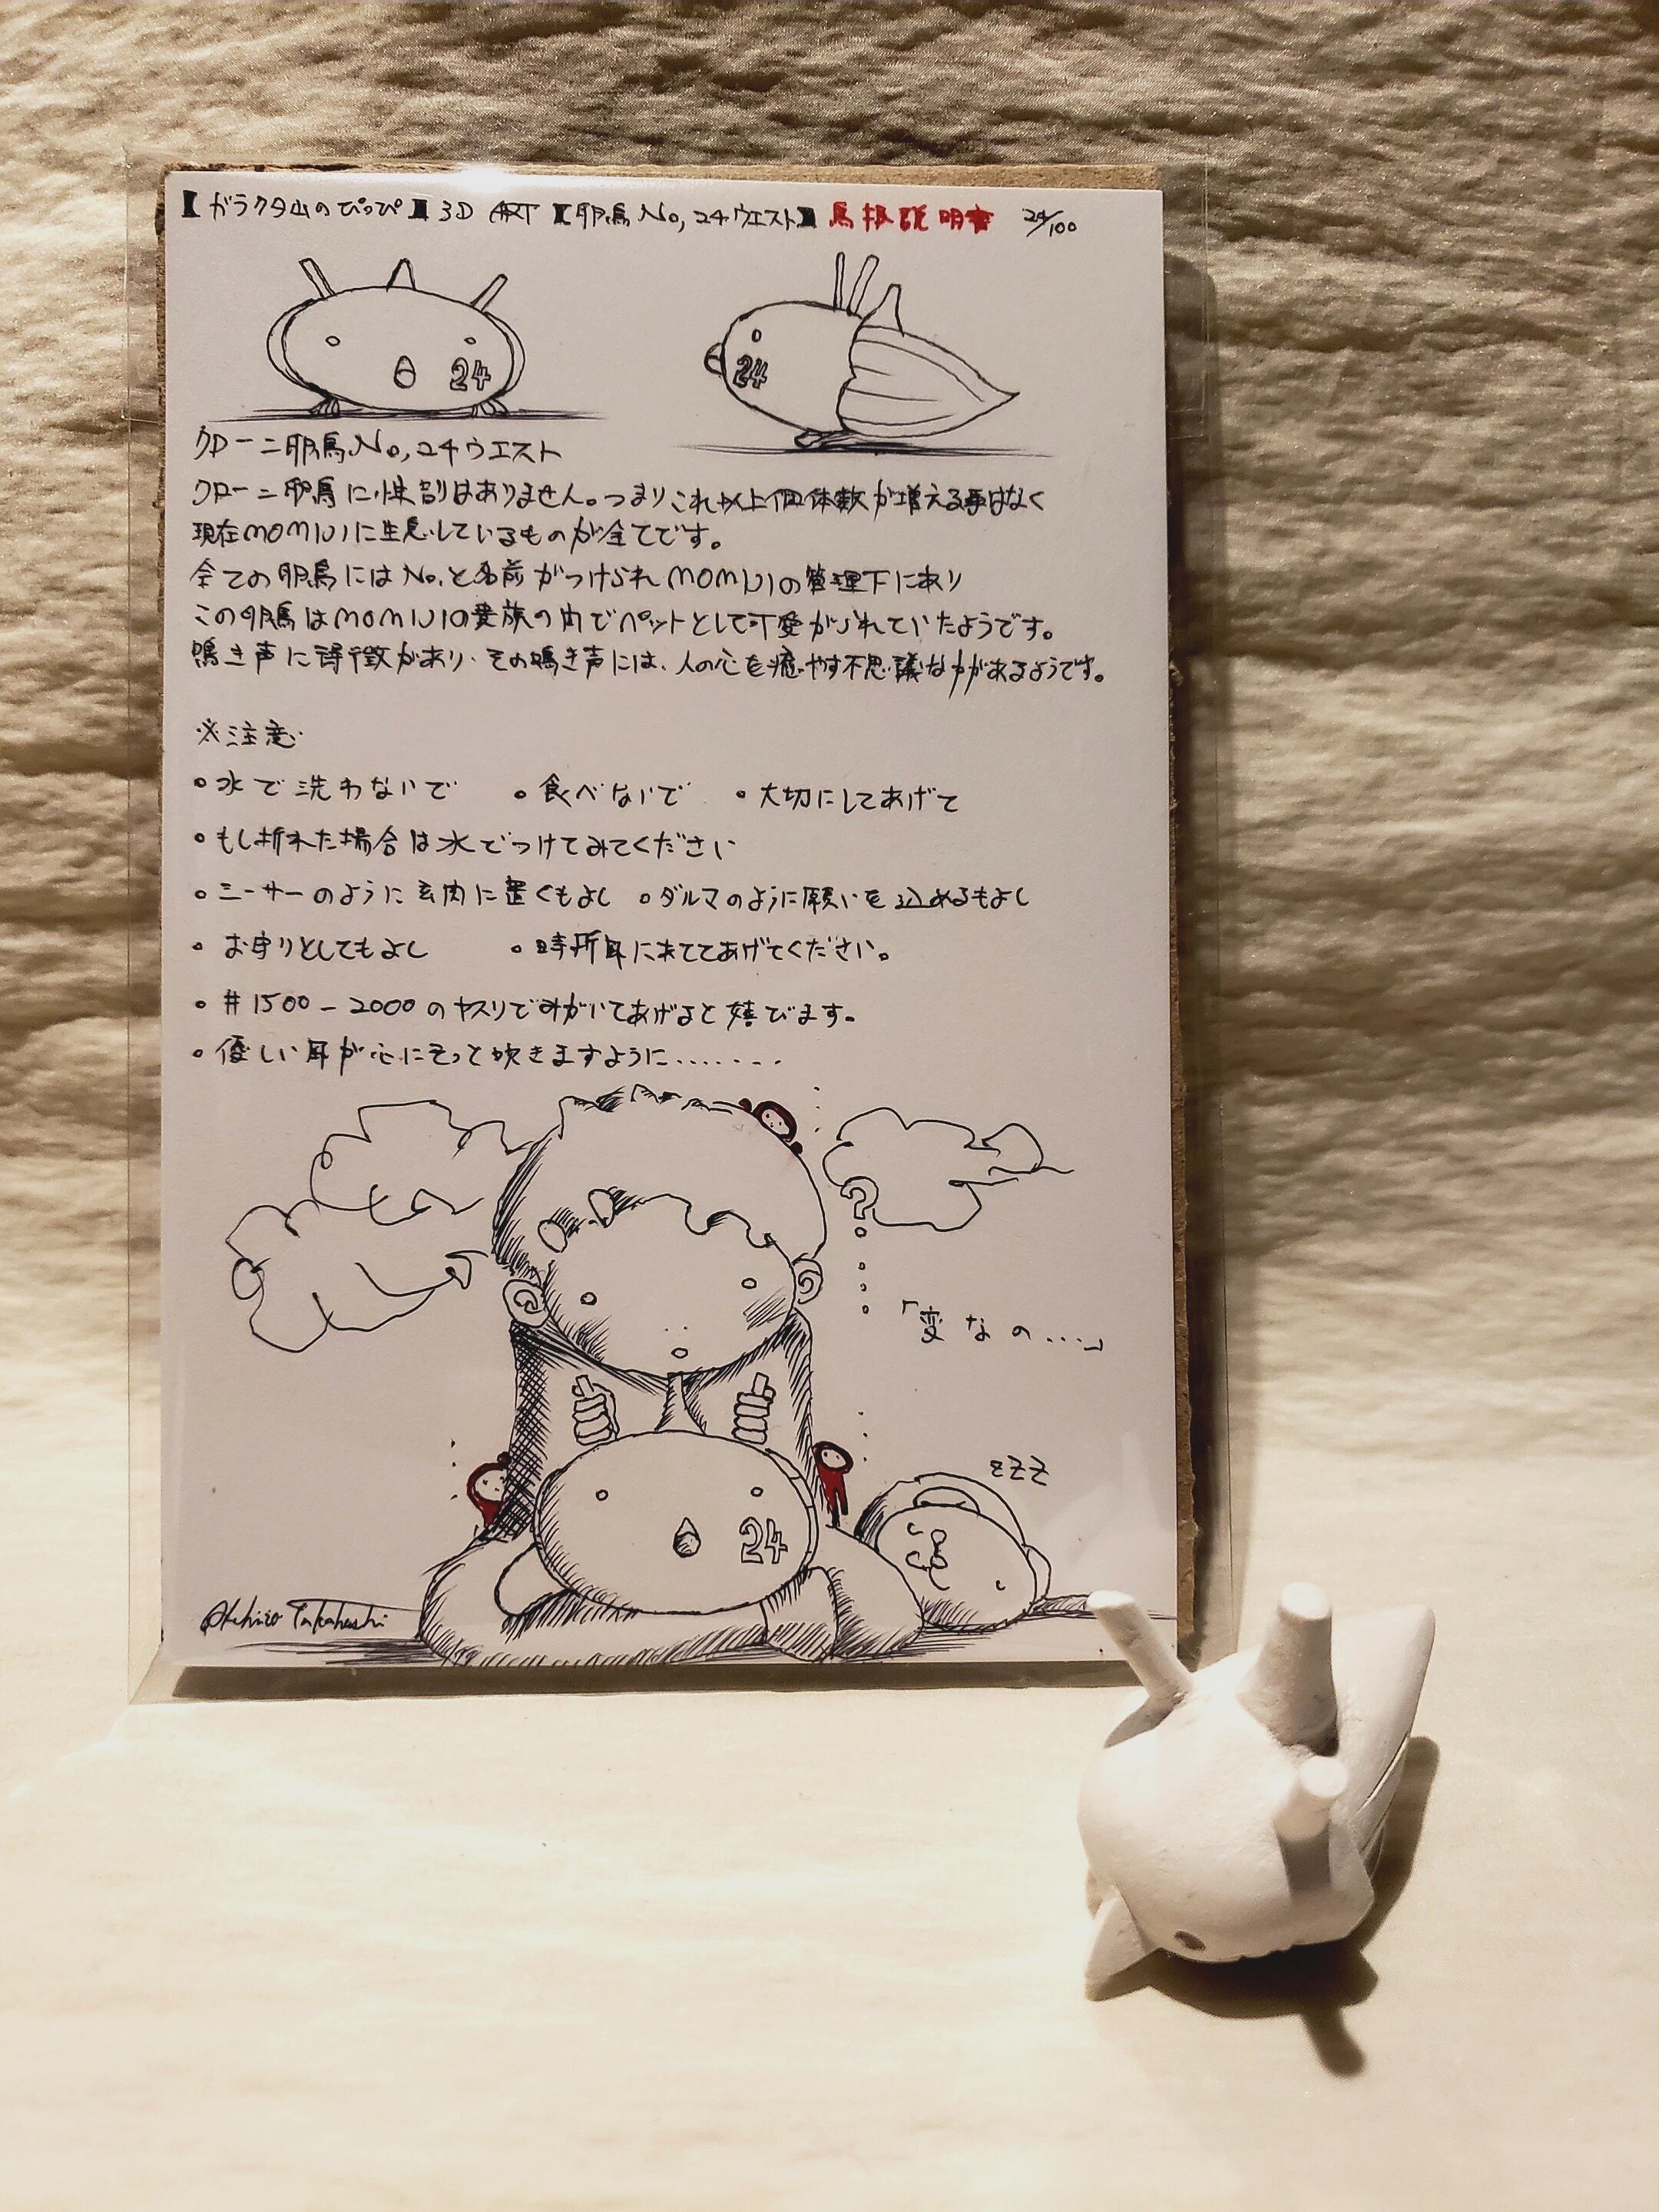 【ガラクタ山のぴっぴ】3D ART【耶鳥No,24ウエスト】鳥扱説明書 24/100
24
24
クローニ耶鳥No,24ウエスト
クローニ耶鳥に性別はありません。つまりこれ以上個体数が増える事はなく
現在MOMIJIに生息しているものが全てです。
全ての耶鳥にはNo.と名前がつけられMOMIJIの管理下にあり
この耶鳥はMOMIJIの貴族の内でペットとして可愛がられていたようです。
鳴き声に特徴があり、その鳴き声には、人の心を癒やす不思議な力があるようです。
※注意
・水で洗わないで ・食べないで ・大切にしてあげて
・もし折れた場合は水でつけてみてください
・ミーサーのように玄関に置くもよし ・ダルマのように願いを込めるもよし
・お守りとしてもよし ・時折耳に来ててあげてください。
・#1500-2000のヤスリでみがいてあげると嬉びます。
・優しい耳が心にそっと吹きますように........
?
「変なの...」
zzz
24
Akihiro Takahashi